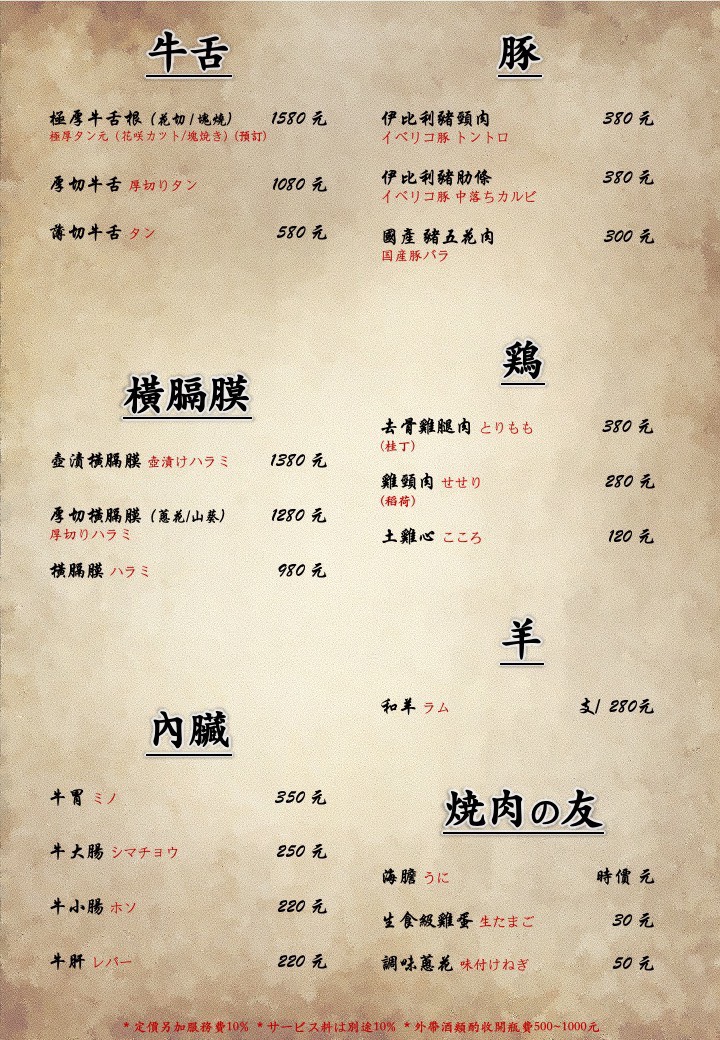 牛舌
極厚牛舌根 (花切/塊燒) 1580 元
極厚タン元 (花咲カツト/塊焼き) (預訂)
厚切牛舌 厚切りタン 1080 元
薄切牛舌 タン 580 元
橫膈膜
壺漬橫膈膜 壺漬けハラミ 1380 元
厚切橫膈膜 (蔥花/山葵) 1280 元
厚切りハラミ
橫膈膜 ハラミ 980 元
內臟
牛胃 ミノ 350 元
牛大腸 シマチョウ 250 元
牛小腸 ホソ 220 元
牛肝 レバー 220 元
豚
伊比利豬頸肉 380 元
イベリコ豚 トントロ
伊比利豬肋條 380 元
イベリコ豚 中落ちカルビ
國產 豬五花肉 300 元
国産豚バラ
鶏
去骨雞腿肉 とりもも 380 元
(桂丁)
雞頸肉 せせり 280 元
(稻荷)
土雞心 こころ 120 元
羊
和羊 ラム 支/ 280元
焼肉の友
海膽 うに 時價 元
生食級雞蛋 生たまご 30 元
調味蔥花 味付けねぎ 50 元
* 定價另加服務費10% * サービス料は別途10% * 外帶酒類酌收開瓶費500~1000元